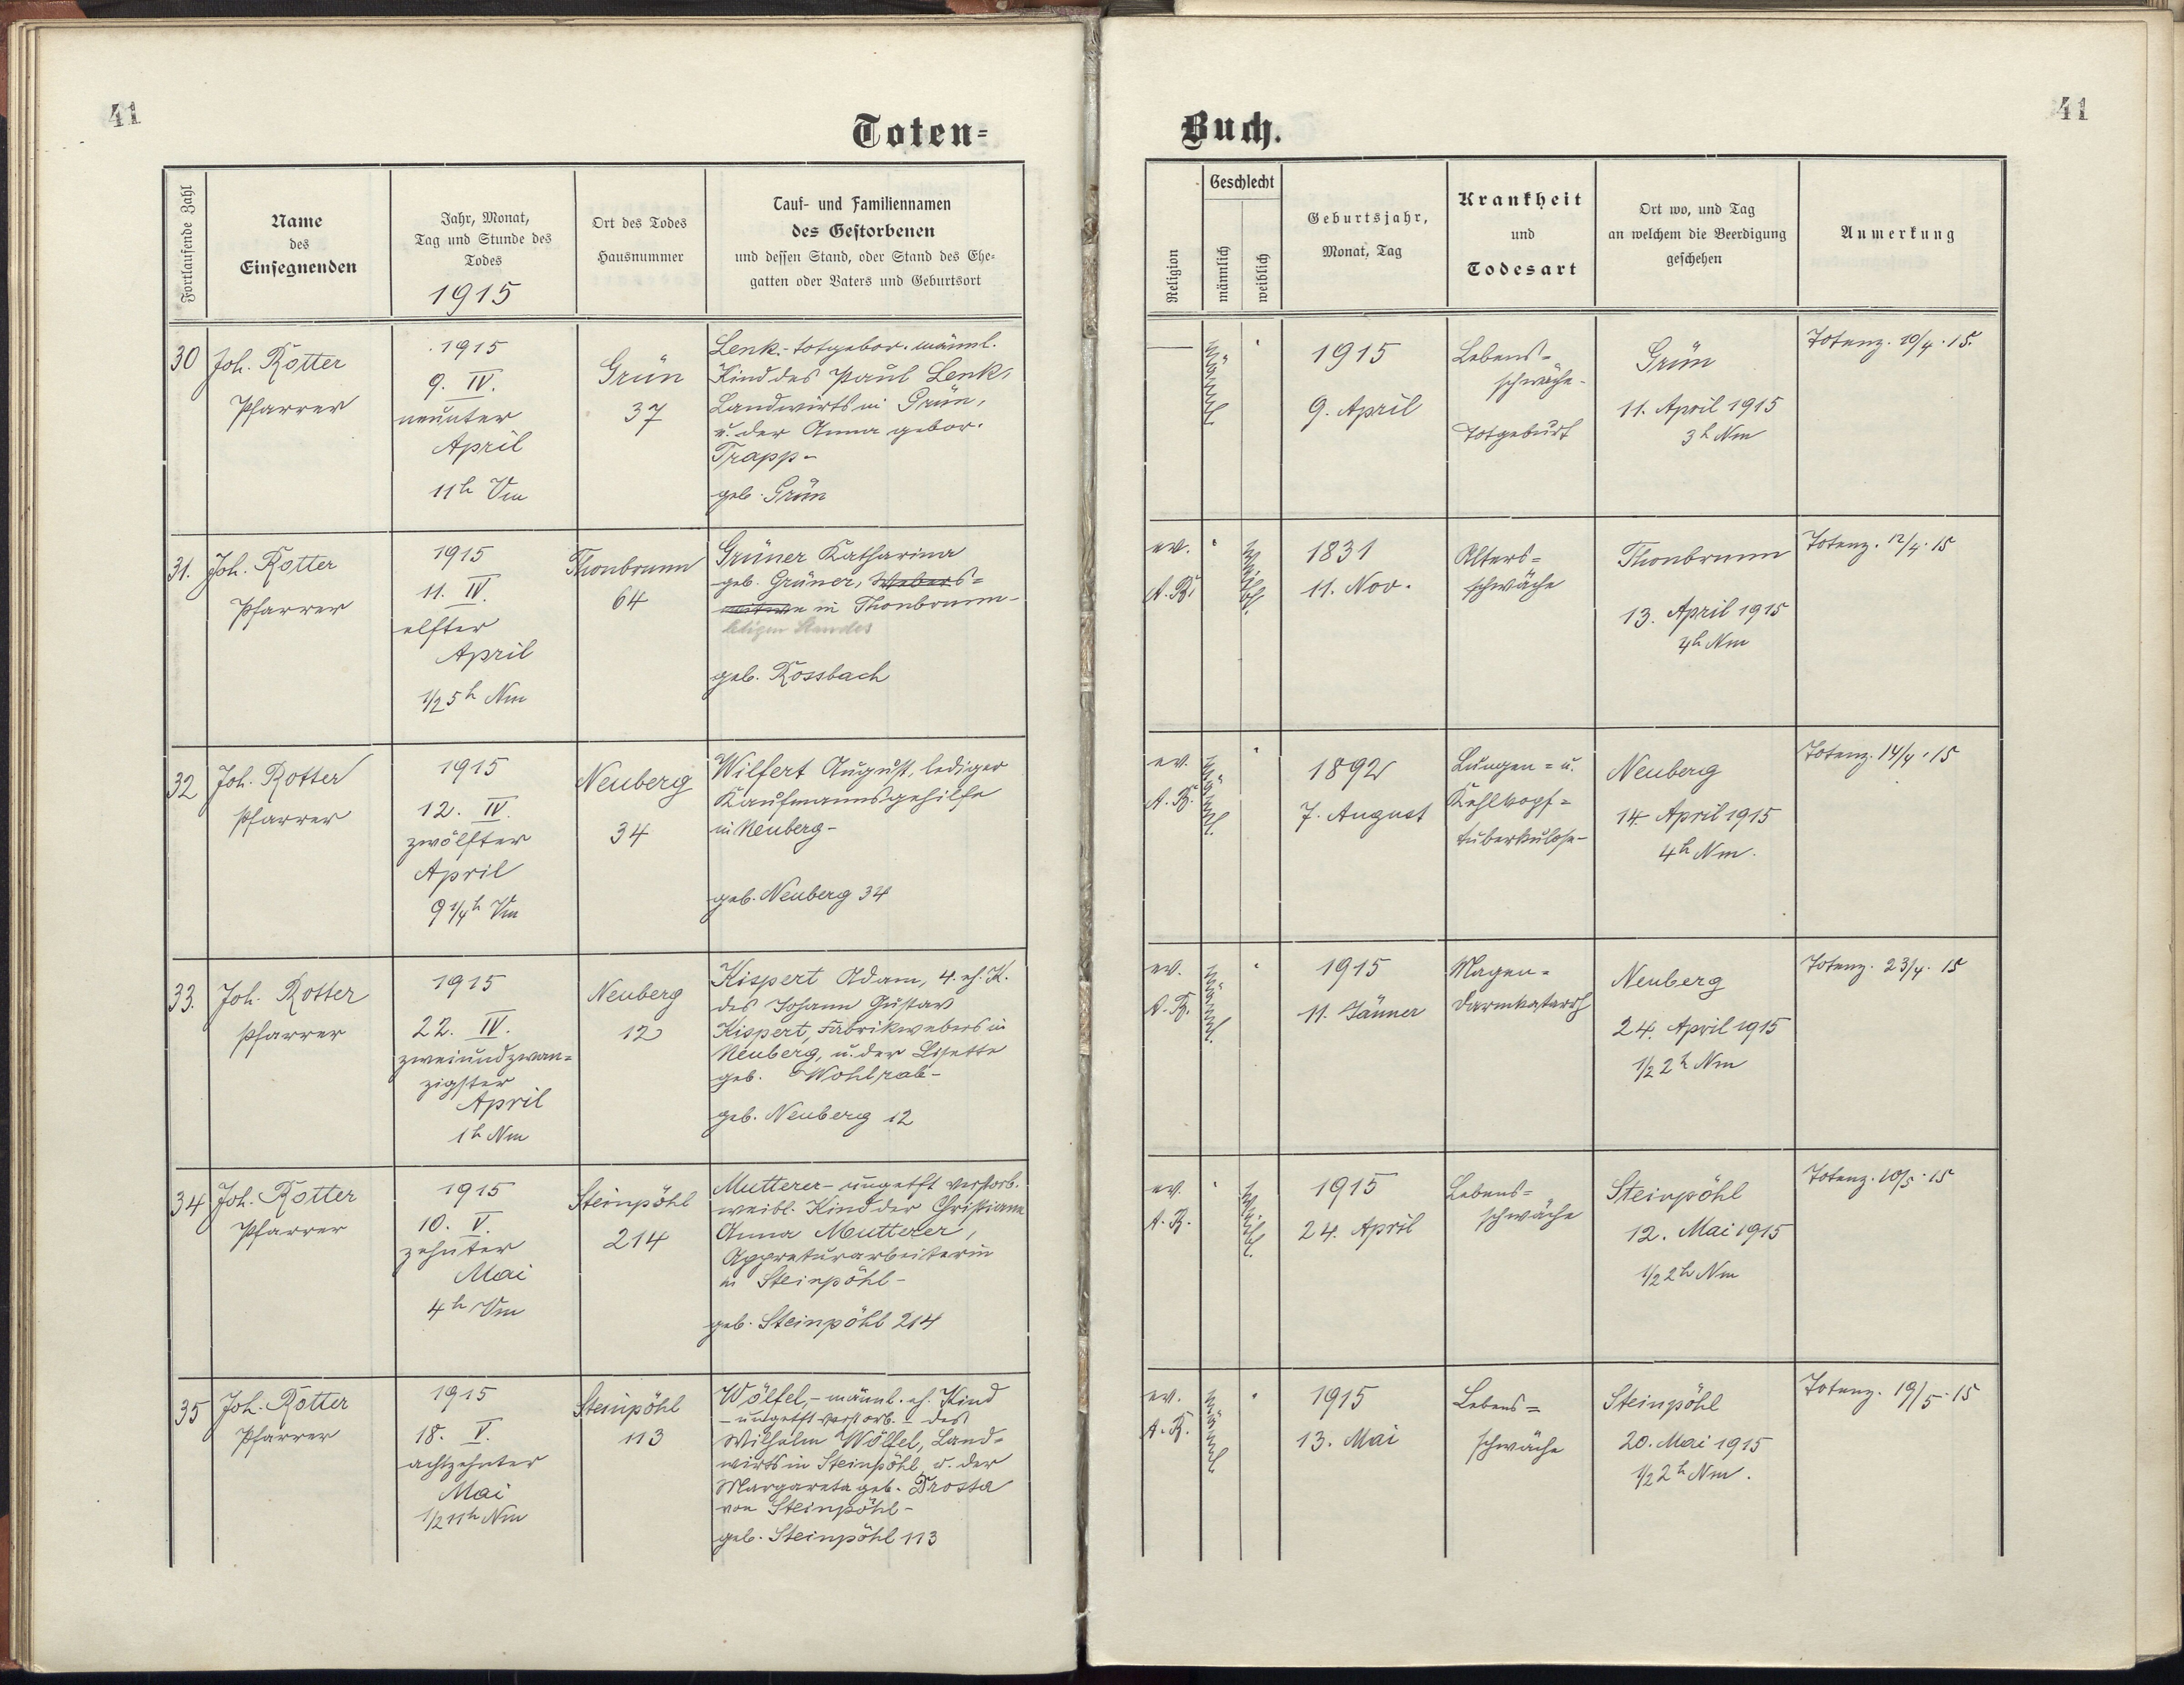 41
Toten=
Fortlaufende Zahl
Name
des
Einsegnenden
Jahr, Monat,
Tag und Stunde des
Todes
1915
Ort des Todes
Hausnummer
Tauf- und Familiennamen
des Gestorbenen
und dessen Stand, oder Stand des Ehe-
gatten oder Vaters und Geburtsort
30
Joh. Rotter
Pfarrer
1915
9. IV.
neunter
April
11h Vm
Grün
37
Lenk.- totgebor. männl.
Kind des Paul Lenk,
Landwirts in Grün,
u. der Anna gebor.
Trapp-
geb. Grün
31.
Joh. Rotter
Pfarrer
1915
11. IV.
elfter
April
1/2 5h Nm
Thonbrunn
64
Grüner Katharina
geb. Grüner, Webers=
witwe in Thonbrunn-
ledigen Standes
geb. Rossbach
32
Joh. Rotter
Pfarrer
1915
12. IV.
zwölfter
April
9 1/4h Vm
Neuberg
34
Wilfert August, lediger
Kaufmannsgehilfe
in Neuberg-
geb. Neuberg 34
33.
Joh. Rotter
Pfarrer
1915
22. IV.
zweiundzwan=
zigster
April
1h Nm
Neuberg
12
Kispert Adam, 4. eh. K.
des Johann Gustav
Kispert, Fabrikwebers in
Neuberg, u. der Lisette
geb. Wohlrab-
geb. Neuberg 12
34
Joh. Rotter
Pfarrer
1915
10. V.
zehnter
Mai
4h Vm
Steinpöhl
214
Mutterer- ungetft verstorb.
weibl. Kind der Christiane
Anna Mutterer,
Appreturarbeiterin
in Steinpöhl-
geb. Steinpöhl 214
35
Joh. Rotter
Pfarrer
1915
18. V.
achtzehnter
Mai
1/2 11h Nm
Steinpöhl
113
Wölfel,- männl. eh. Kind
- ungetft verstorb. - des
Wilhelm Wölfel, Land=
wirts in Steinpöhl, u. der
Margareta geb. Prosta
von Steinpöhl-
geb. Steinpöhl 113
Buch.
41
Religion
Geschlecht
männlich
weiblich
Geburtsjahr,
Monat, Tag
Krankheit
und
Todesart
Ort wo, und Tag
an welchem die Beerdigung
geschehen
Anmerkung
männl
1915
9. April
Lebens=
schwäche-
Totgeburt
Grün
11. April 1915
3h Nm
Totenz. 10/4. 15.
ev.
A. B.
weibl.
1831
11. Nov.
Alters=
schwäche
Thonbrunn
13. April 1915
4h Nm
Totenz. 12/4. 15
ev.
A. B.
männl.
1892
7. August
Lungen= u.
Kehlkopf=
tuberkulose-
Neuberg
14. April 1915
4h Nm.
Totenz. 14/4. 15
ev.
A. B.
männl.
1915
11. Jänner
Magen=
Darmkatarrh
Neuberg
24. April 1915
1/2 2h Nm
Totenz. 23/4. 15
ev.
A. B.
weibl.
1915
24. April
Lebens=
schwäche
Steinpöhl
12. Mai 1915
1/2 2h Nm
Totenz. 10/5. 15
ev.
A. B.
männl
1915
13. Mai
Lebens=
schwäche
Steinpöhl
20. Mai 1915
1/2 2h Nm.
Totenz. 19/5. 15